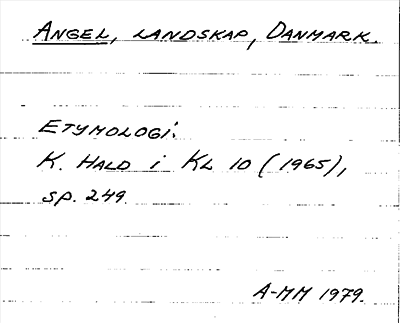 ANGEL, LANDSKAP, DANMARK.
ETYMOLOGI:
K. HALD i KL 10 (1965),
sp. 249.
A-MM 1979.